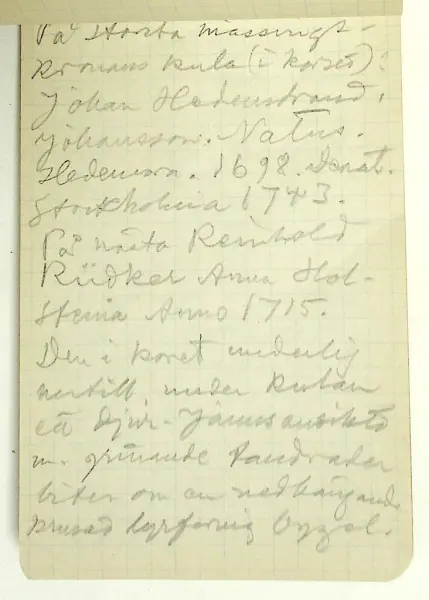 På Största mässingskronans kula (i korset):
Johan Hedenstrand.
Johansson. Natus.
Hedemora. 1698. Denat.
Stockholmia 1743.
På nästa Reinhold
Rüdker Anna Hol-
steina Anno 1715.
Den i koret nederlig
nertill under kulan
ett djur- Janus ansikte
m. grinande tandrader
biter om en nedhängande
krusad lyrformig bygel.